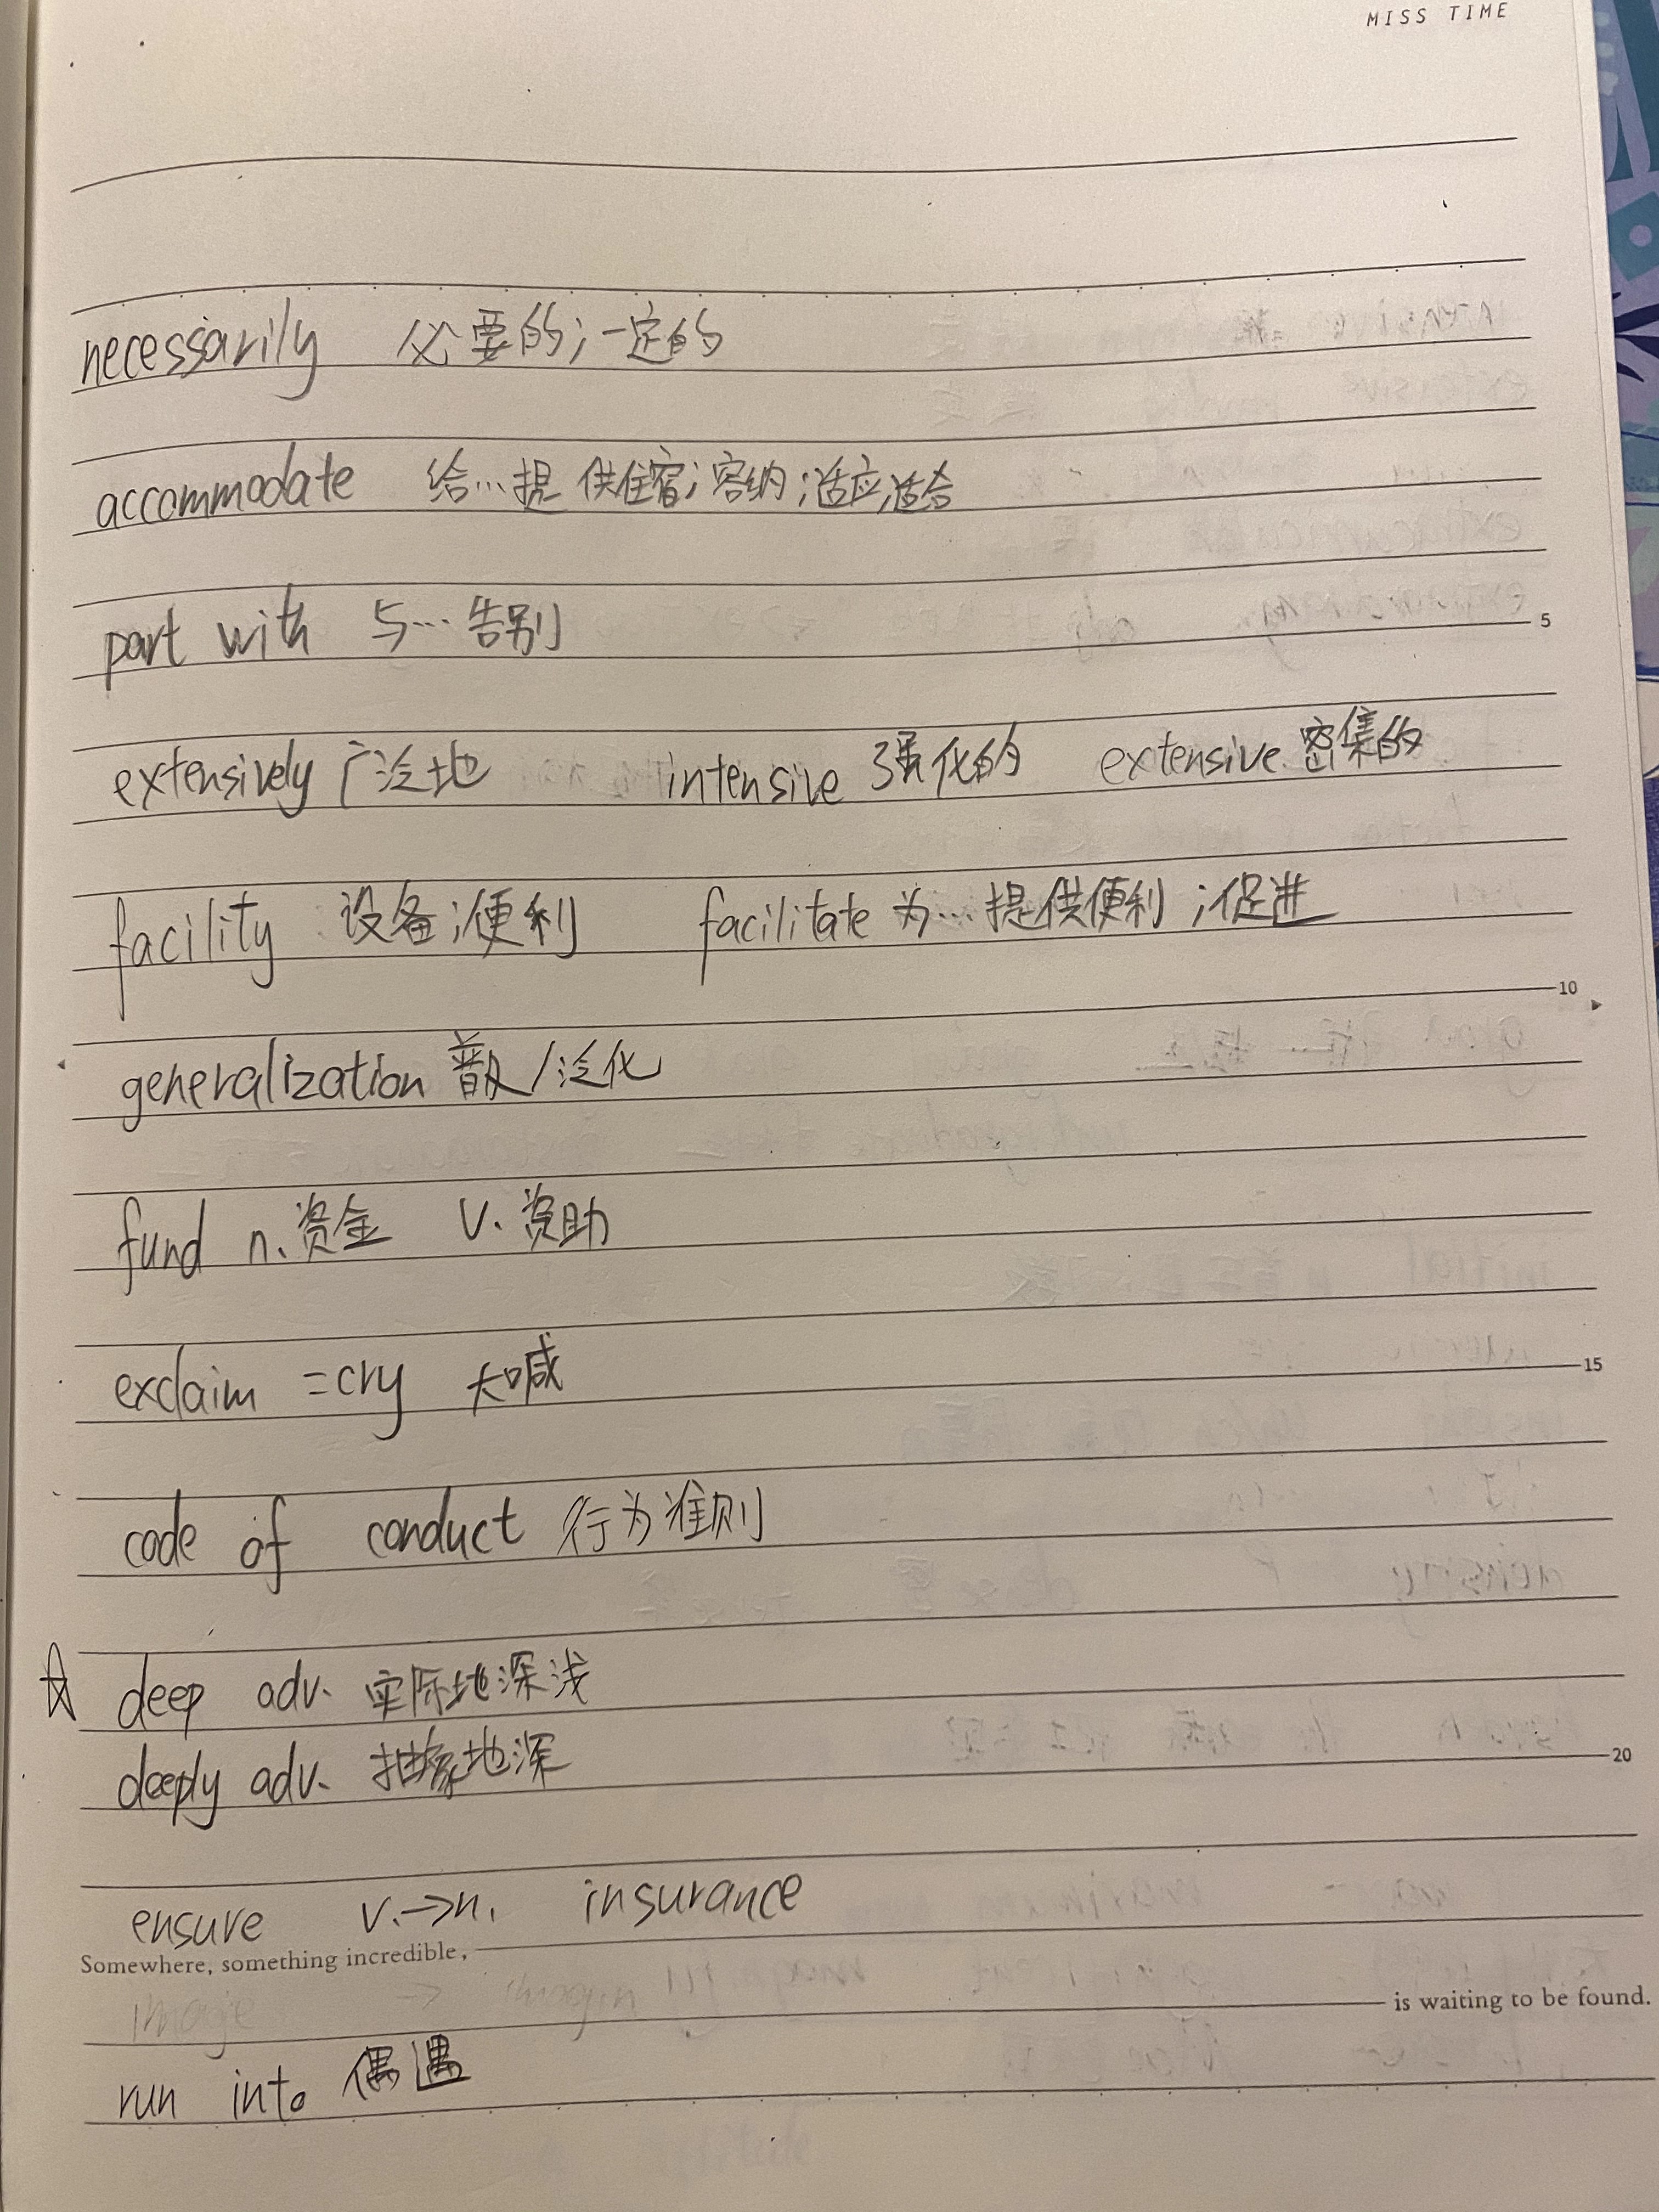 MISS TIME
necessarily 必要的；一定的
accommodate 给…提供住宿；容纳；适应,适合
part with 与…告别
5
extensively 广泛地 intensive 强化的 extensive 密集的
facility 设备；便利 facilitate 为…提供便利；促进
10
generalization 普及/泛化
fund n. 资金 v. 资助
exclaim =cry 大喊
15
code of conduct 行为准则
☆ deep adv. 实际地深浅
deeply adv. 抽象地深
20
ensure v.→n. insurance
Somewhere, something incredible, is waiting to be found.
run into 偶遇